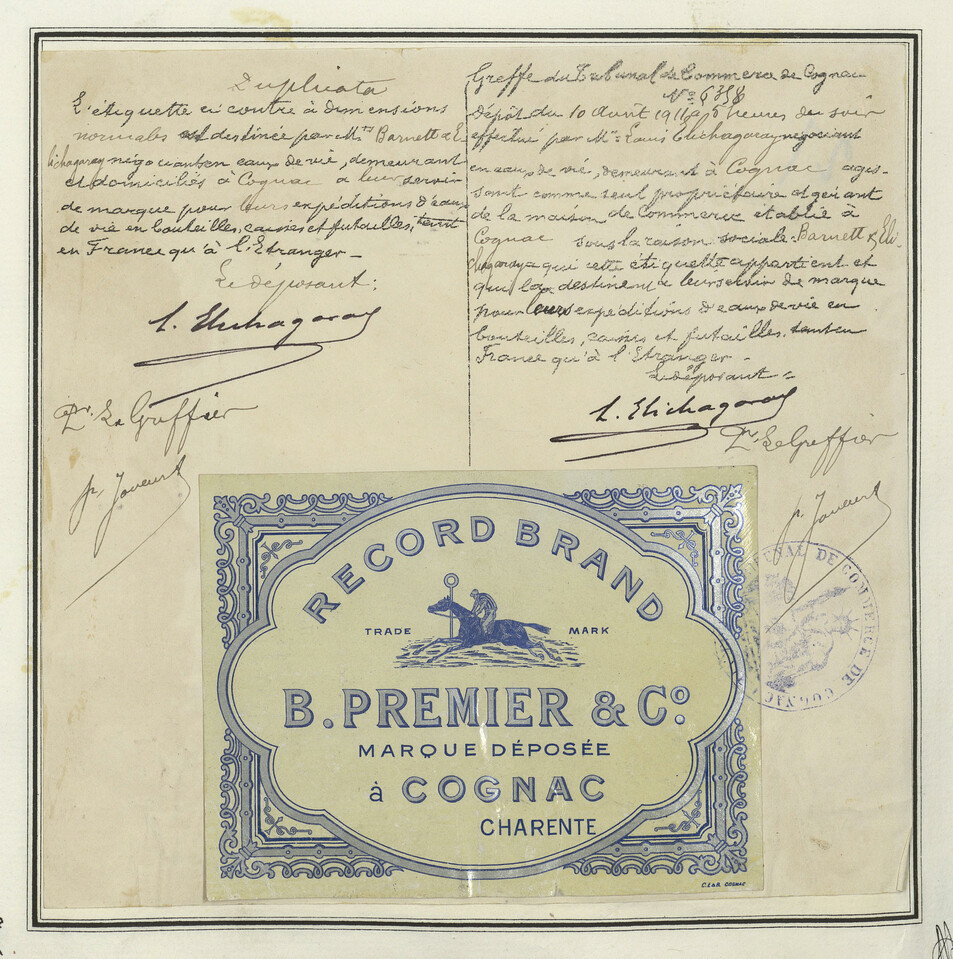 Duplicata
L'étiquette ci contre à dimensions
normales est destinée par Mrs Barnett & E
lichagaray négociants en eaux de vie, demeurant
et domiciliés à Cognac a leur servir
de marque pour leurs expéditions d'eaux
de vie en bouteilles, caisses et futailles, tant
en France qu'à l'Etranger _
Le déposant:
L. Elichagaray
Pr. Le Greffier
Greffe du Tribunal de Commerce de Cognac
No 6358
dépôt du 10 Août 1911 à heures du soir
effectué par Mr Louis Elichagaray négociant
en eaux de vie, demeurant à Cognac agis-
sant comme seul propriétaire et gérant
de la maison de Commerce établie à
Cognac sous la raison sociale Barnett & Eli-
chagaray a qui cette étiquette appartient et
qui la destinent a leur servir de marque
pour leurs expéditions d'eaux de vie en
bouteilles, caisses et futailles, tant en
France qu'à l'Etranger _
Le déposant =
L. Elichagaray
Pr Le Greffier
RECORD BRAND
TRADE MARK
B. PREMIER & Co.
MARQUE DÉPOSÉE
à COGNAC
CHARENTE
C.L&B. COGNAC
TRIBUNAL DE COMMERCE DE COGNAC